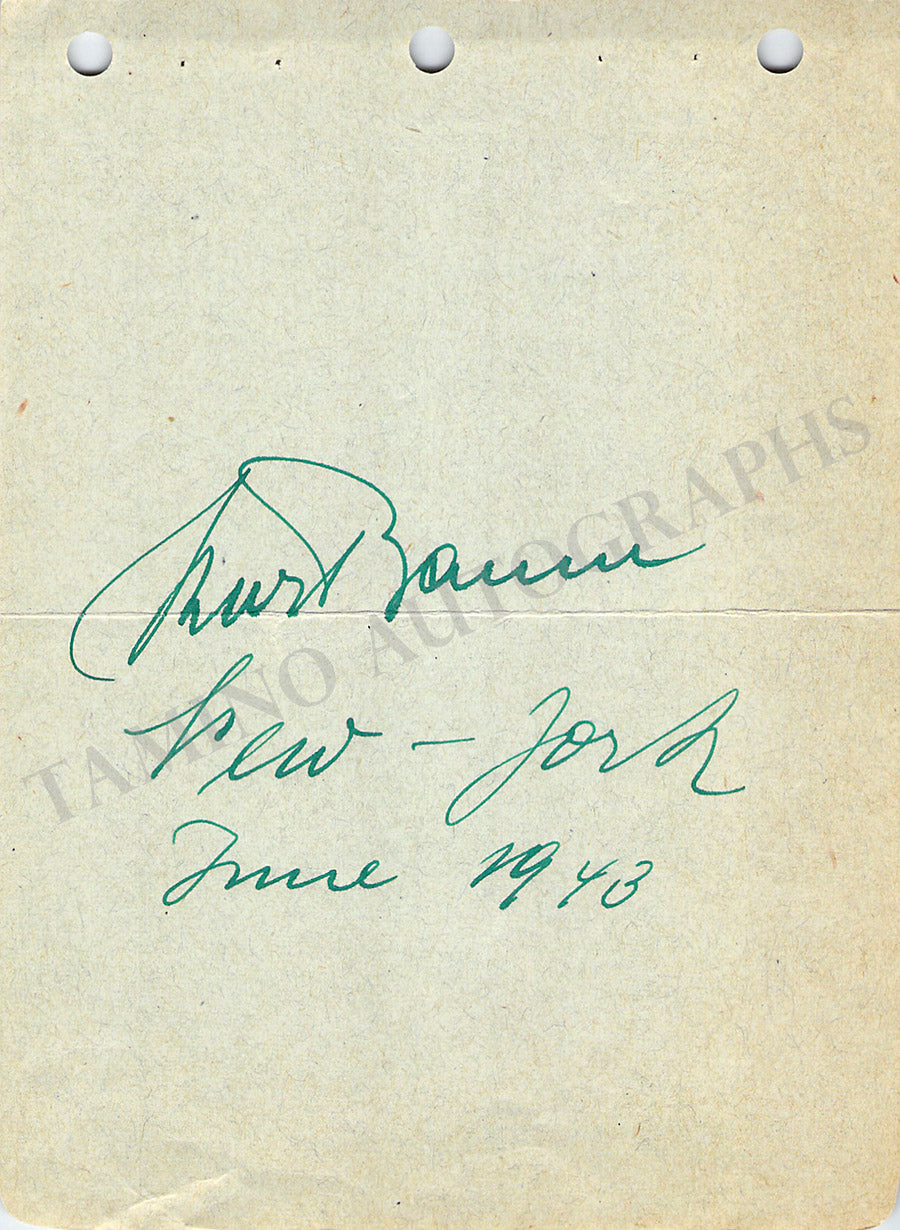 Kurt Baum
New - York
June 1943
TAMINO AUTOGRAPHS